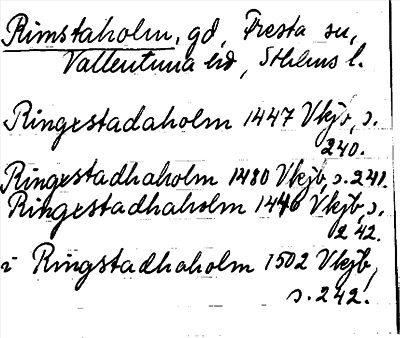 Rimstaholm, gd, Fresta sn,
Vallentuna hd, Sthlms l.
Ringestadaholm 1447 Vkjb, s.
240.
Ringestadhaholm 1480 Vkjb, s. 241.
Ringestadhaholm 1446 Vkjb, s.
242.
i Ringstadhaholm 1502 Vkjb,
s. 242.